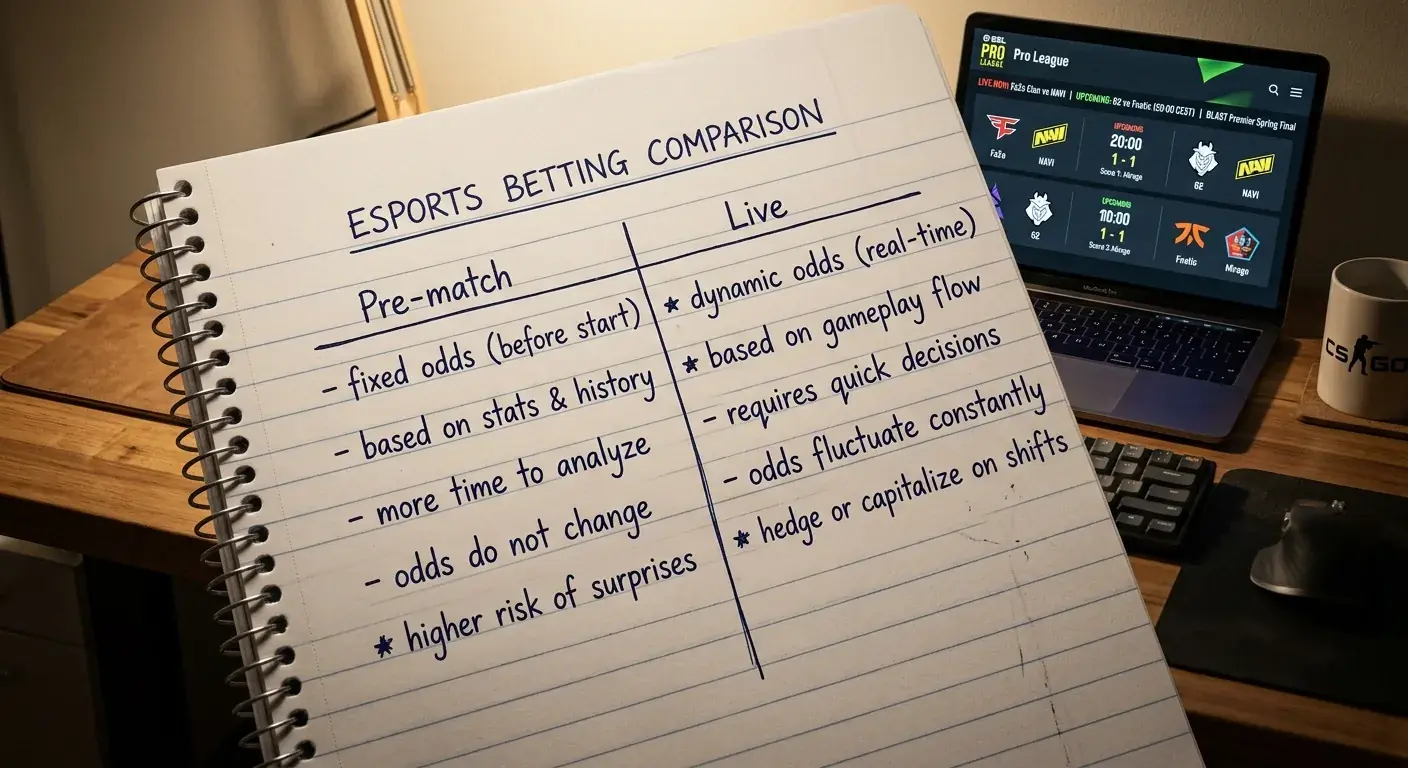 ESPORTS BETTING COMPARISON
Pre-match
- fixed odds (before start)
- based on stats & history
- more time to analyze
- odds do not change
* higher risk of surprises
Live
* dynamic odds (real-time)
* based on gameplay flow
- requires quick decisions
- odds fluctuate constantly
* hedge or capitalize on shifts
ESL
PRO
LEAGUE
Pro League
LIVE NOW: FaZe Clan vs NAVI | UPCOMING: 62 vs Fnatic | BLAST Premier Spring Final
UPCOMING
20:00
1 - 1
FaZe
NAVI
NAVI
62
NAVI
UPCOMING
1 - 1
62
Fnetic
Mirago
CS GO